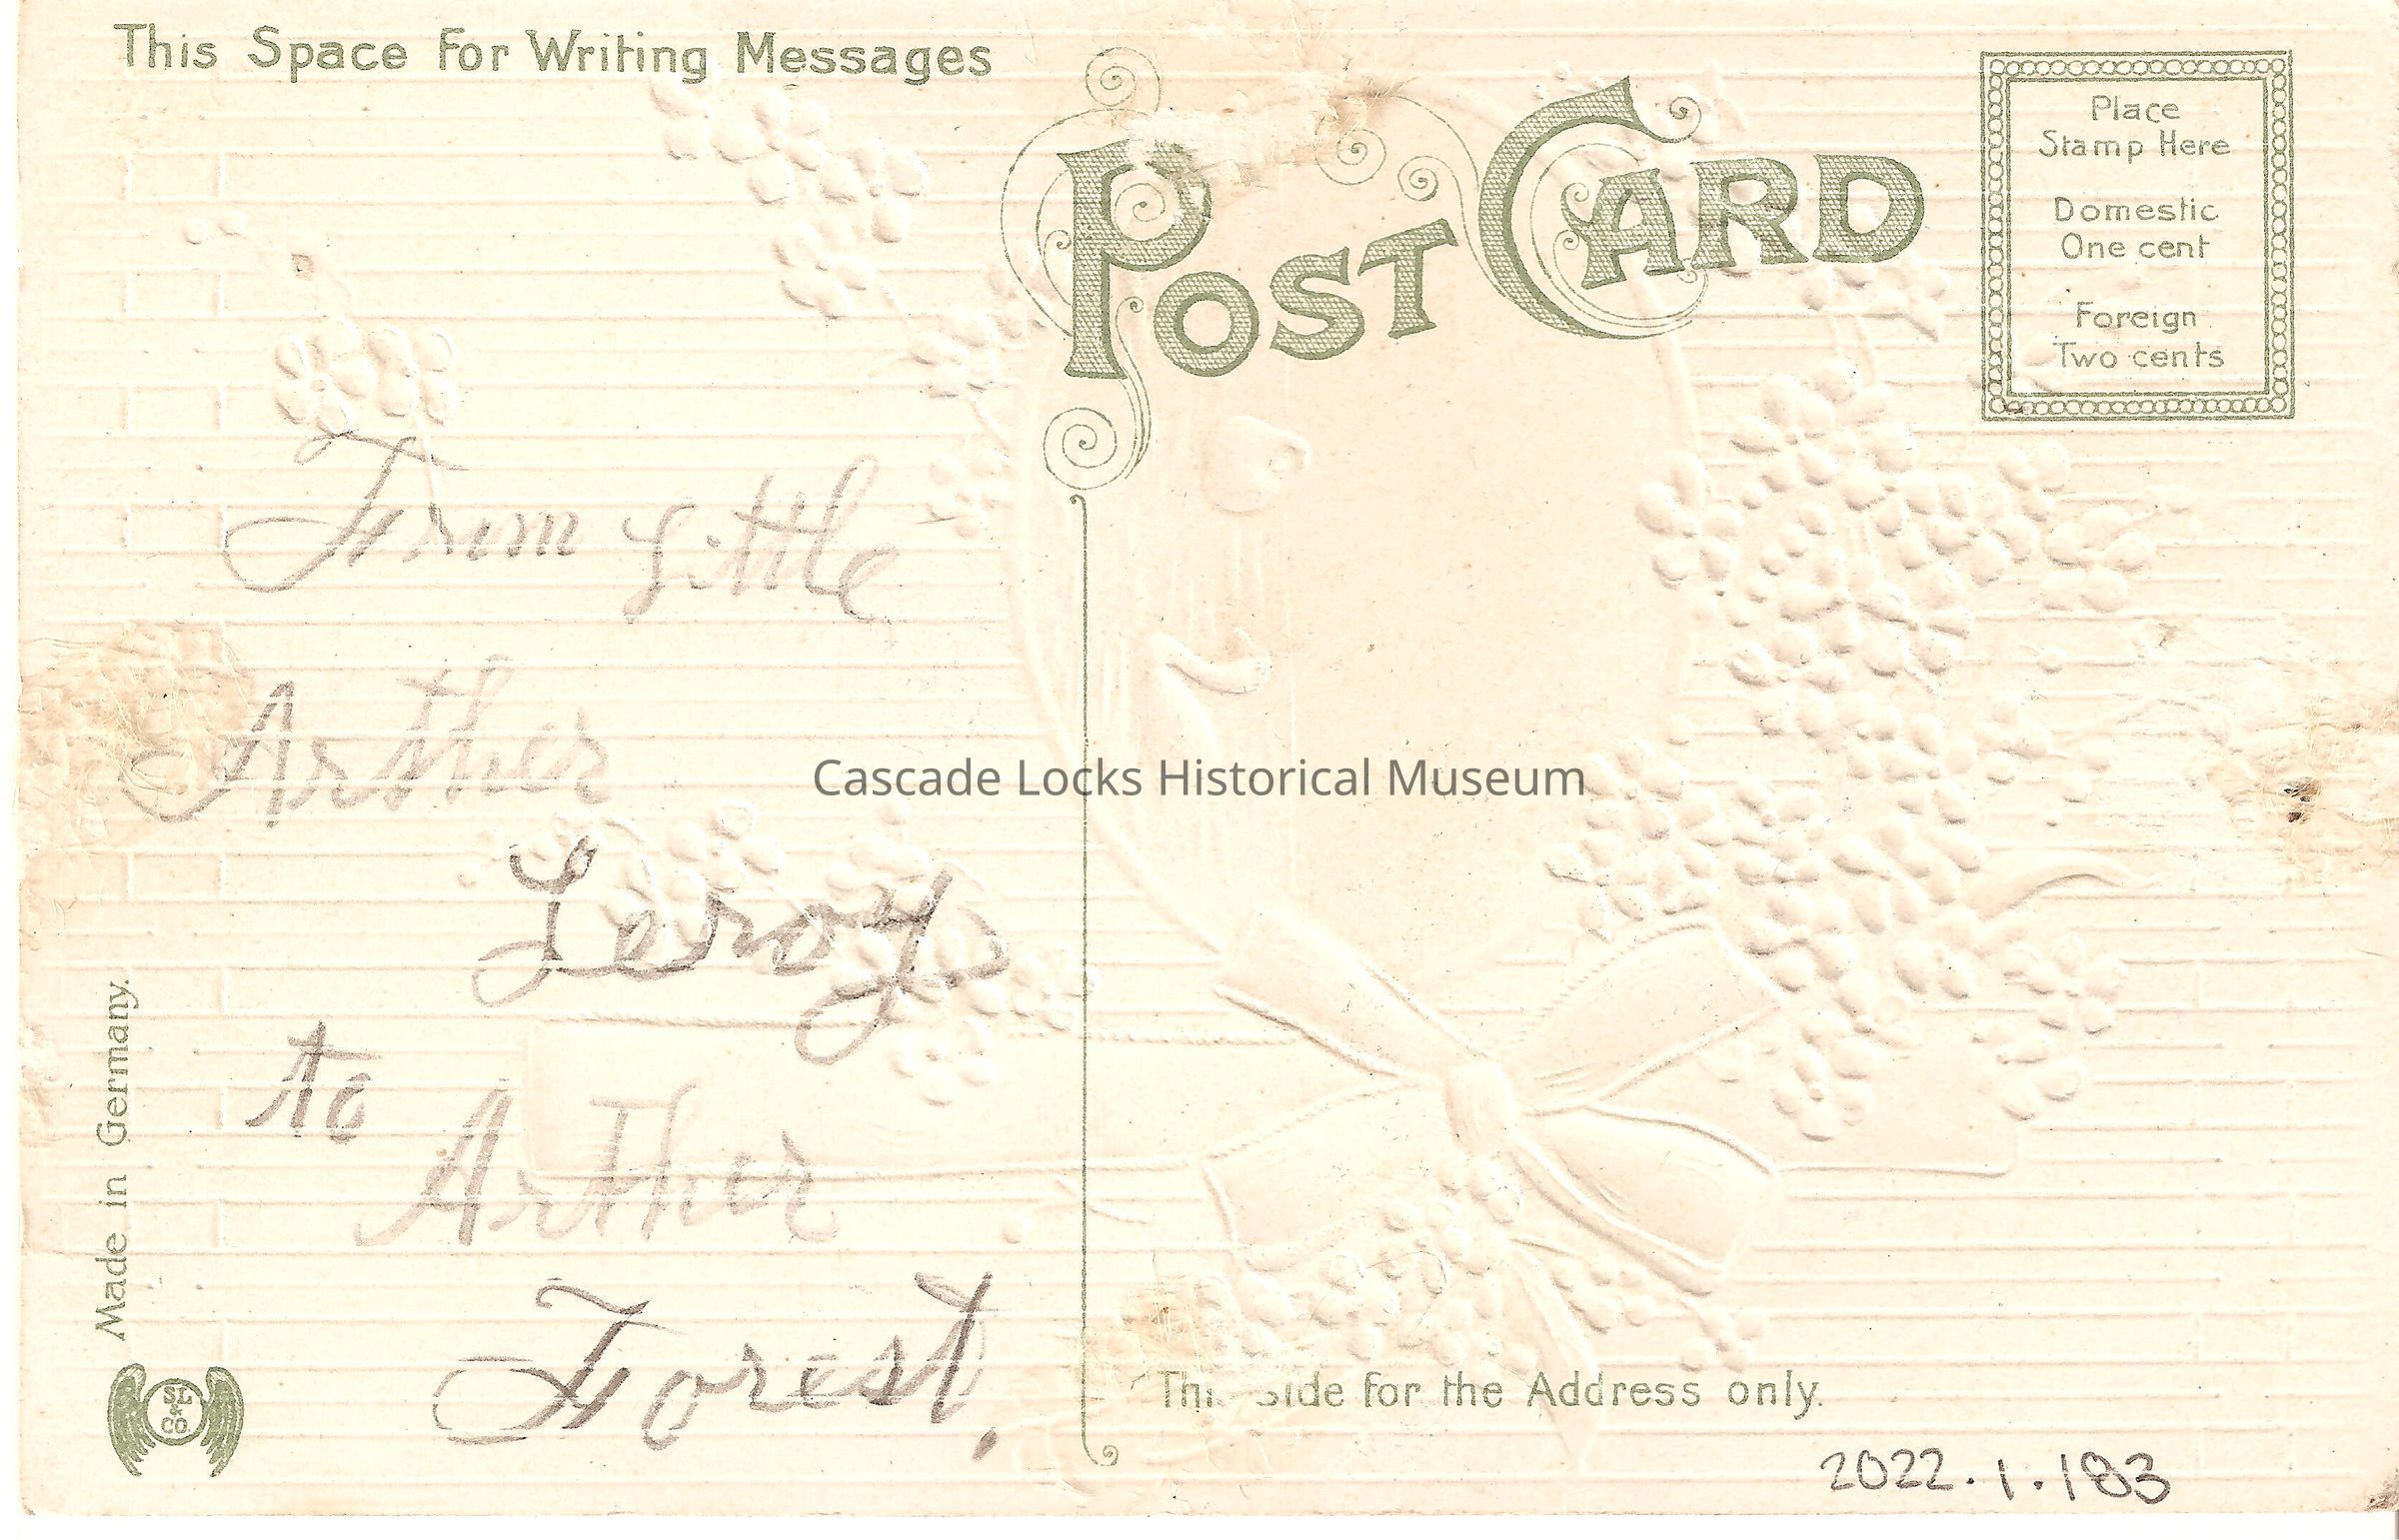 This Space for Writing Messages
POST CARD
Place
Stamp Here
Domestic
One cent
Foreign
Two cents
From Little
Arther
Leroy
to
Arther
Forest.
Cascade Locks Historical Museum
Made in Germany.
SL
&
CO
This Side for the Address only.
2022.1.183